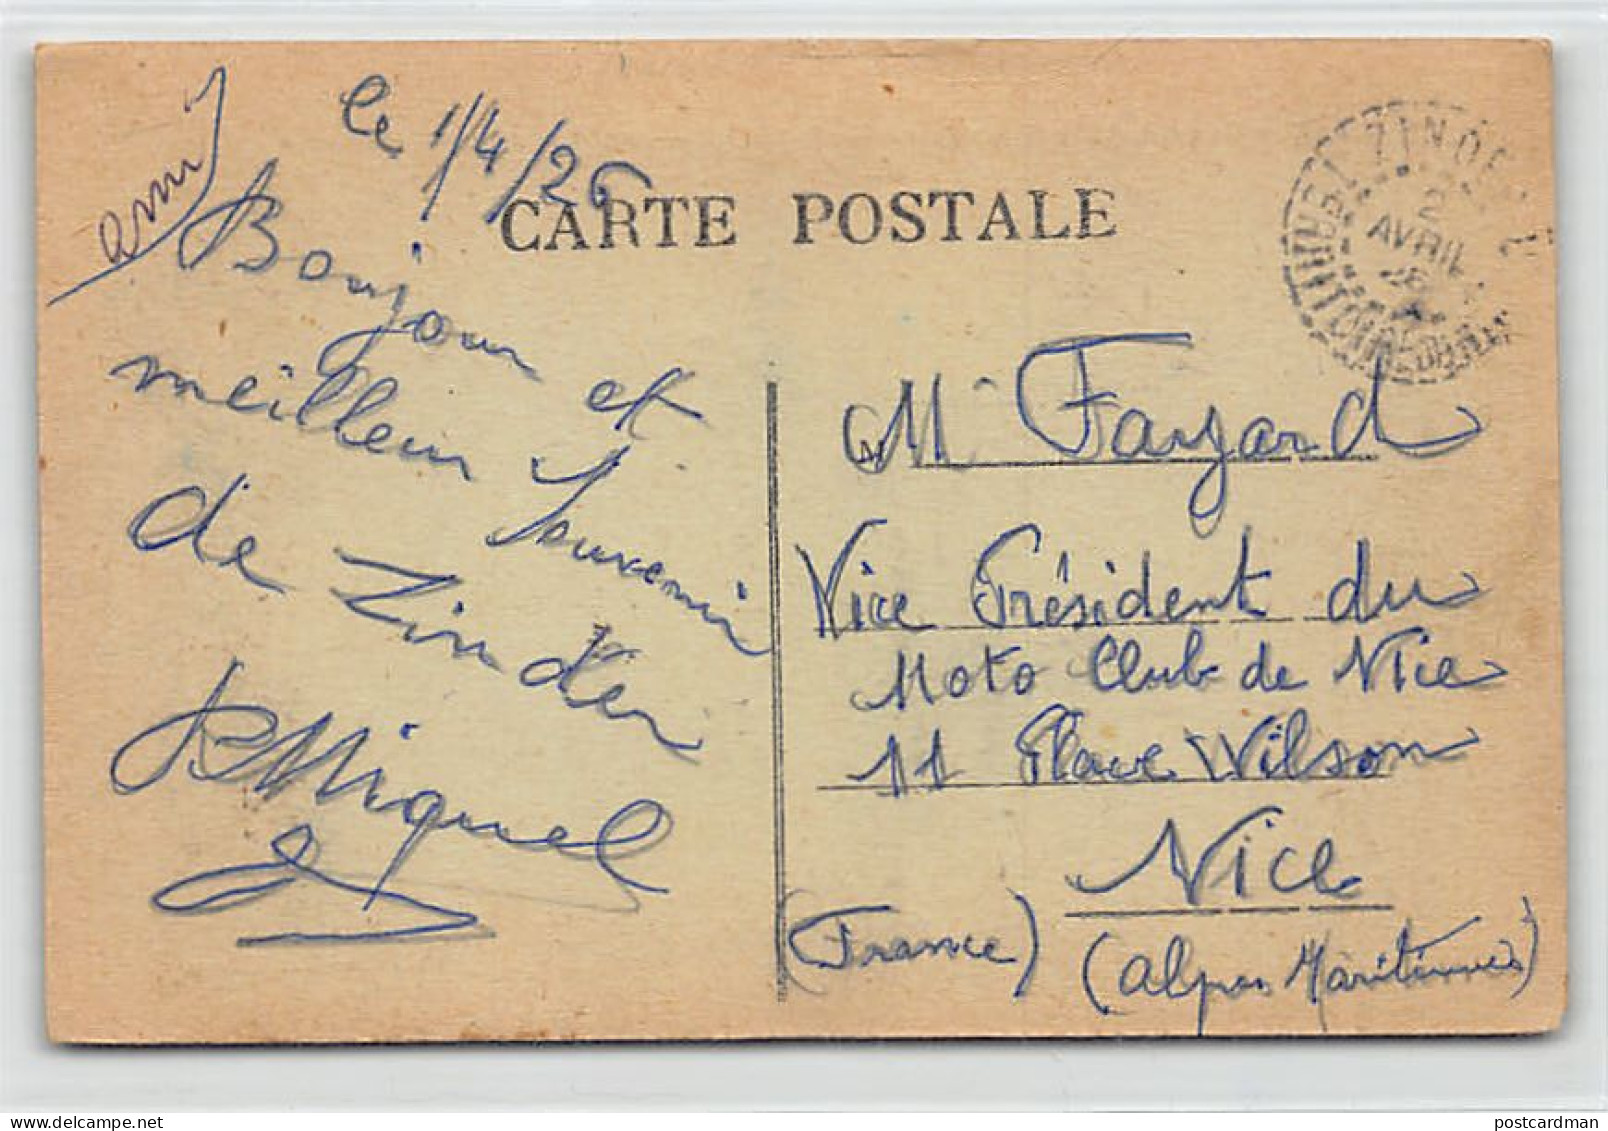 ami
le 1/4/26
Bonjour et
meilleur Souvenir
de Zinder
Miquel
CARTE POSTALE
ZINDER
2
AVRIL
26
M Fayard
Vice Président du
Moto Club de Nice
11 Place Wilson
Nice
(France)
(Alpes Maritimes)
postcardman